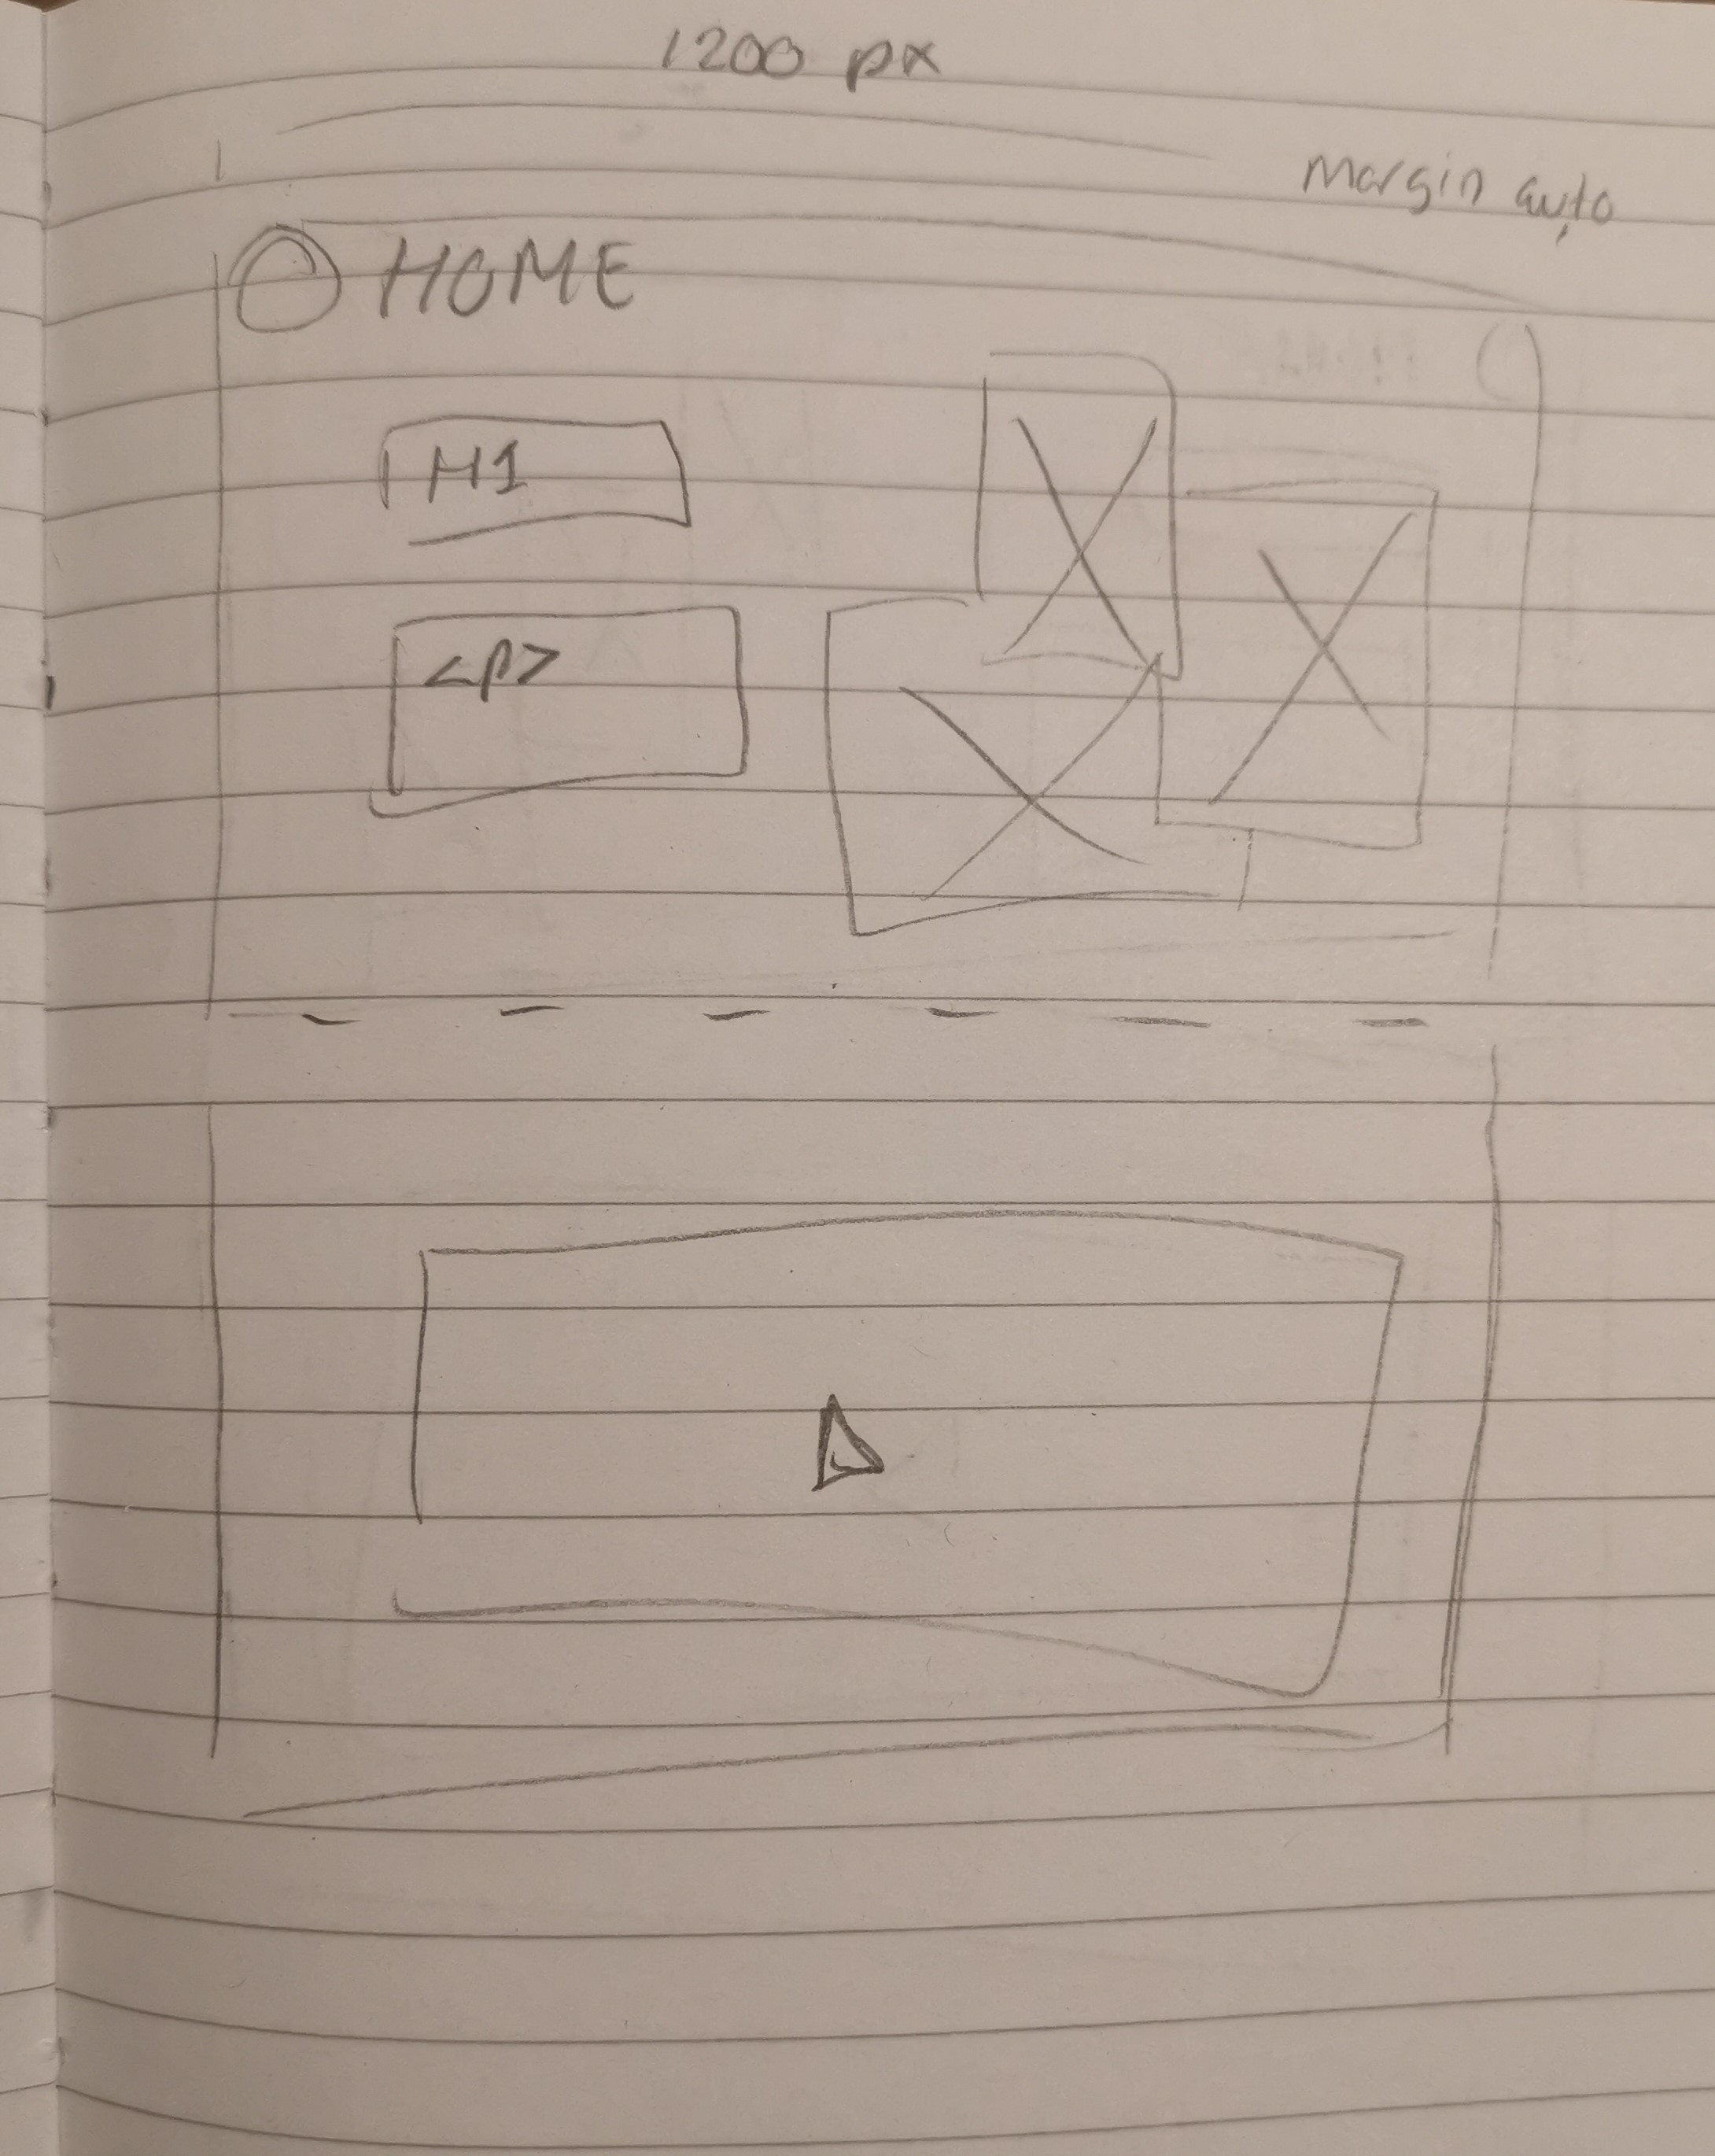 1200 px
margin auto
HOME
H1
<p>